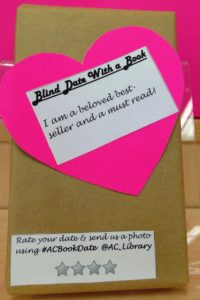 Blind Date With a Book
I am a beloved best-
seller and a must read!
Rate your date & send us a photo
using #ACBookDate @AC_Library